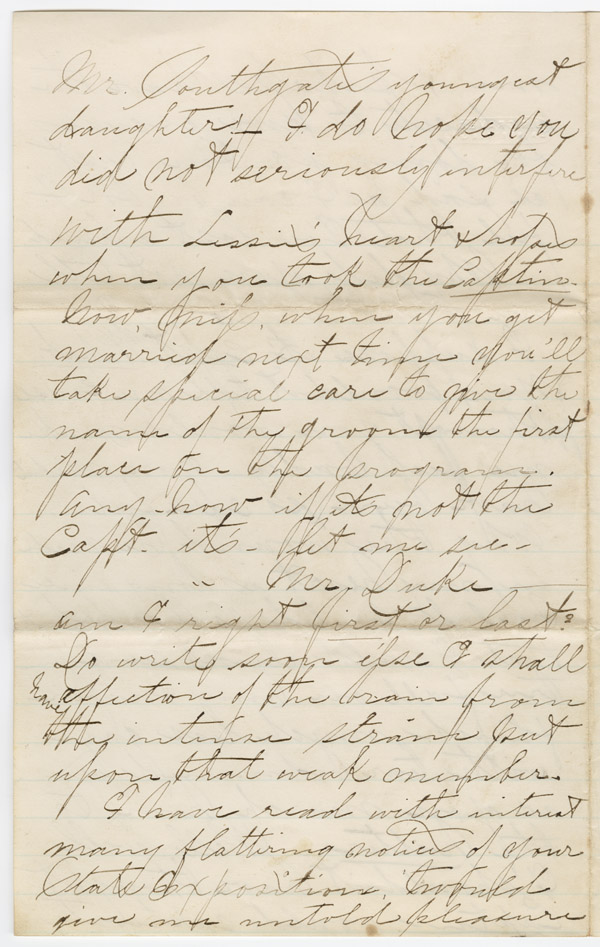 Mr. Southgate's youngest
daughter! – I do hope you
did not seriously interfere
with Lessie's heart & hopes
when you took the Captin.
Now, Miss, when you get
married next time you'll
take special care to give the
name of thy groom the first
place on the program.
Any-how if its not the
Capt. it's – let me see –
" Mr. Duke
am I right first or last?
Do write soon else I shall
have affection of the brain from
the intense strain put
upon that weak member.
I have read with interest
many flattering notices of your
State Exposition, 'twould
give me untold pleasure